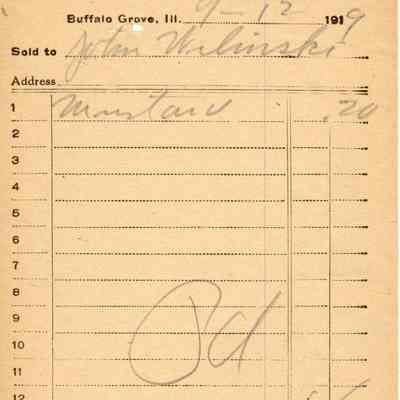 Buffalo Grove, Ill. 9-12 1919
Sold to John Wilinski
Address
1 Mustard .20
2
3
4
5
6
7
8
9
10
11
12
Pd